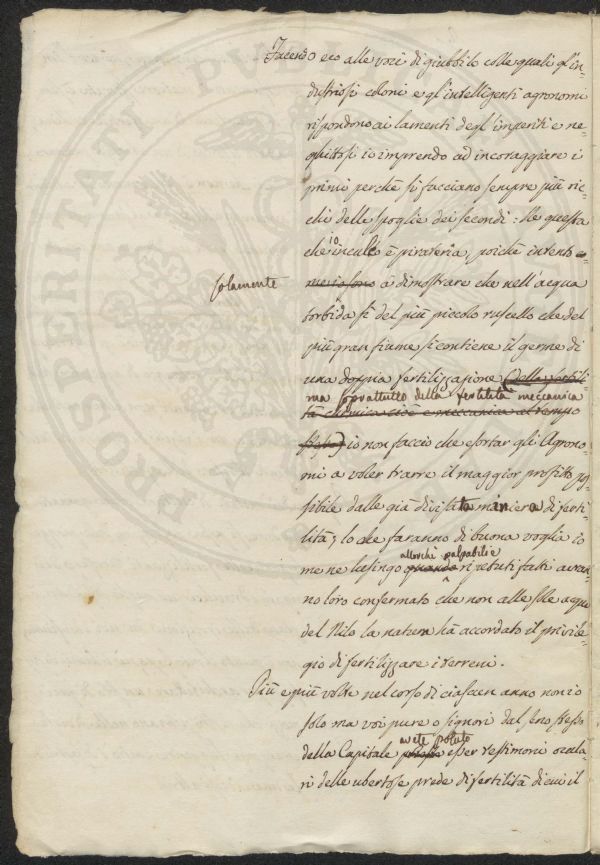 Facendo eco alle voci di giubbilo colle quali gl'in-
dustriosi coloni e gl'intelligenti agronomi
rispondono ai lamenti degl'imperiti e ne-
ghittosi io imprendo ad incoraggiare i
primi perchè si facciano sempre più ric-
chi delle spoglie dei secondi: Nè questa
che io inculco è pirateria, poichè intento
solamente
a dimostrare che nell'acqua
torbida sì del più piccolo ruscello che del
più gran fiume si contiene il germe di
una doppia fertilizzazione (della fertili-
ma soprattutto della fertilità meccanica
tà chimica cioè e meccanica al tempo
stesso) io non faccio che esortar gli Agrono-
mi a voler trarre il maggior profitto pos-
sibile dalle già divisata maniera di ferti-
lità; lo che faranno di buona voglia io
allorchè palpabili e
me ne lusingo quando ripetuti fatti avran-
no loro confermato che non alle sole acque
del Nilo la natura hà accordato il privile-
gio di fertilizzare i terreni.
Più e più volte nel corso di ciascun anno non io
solo ma voi pure o signori dal seno stesso
avete potuto
della Capitale esser testimoni ocula-
ri delle ubertose prede di fertilità di cui il
PROSPERITATI PUBLICAE